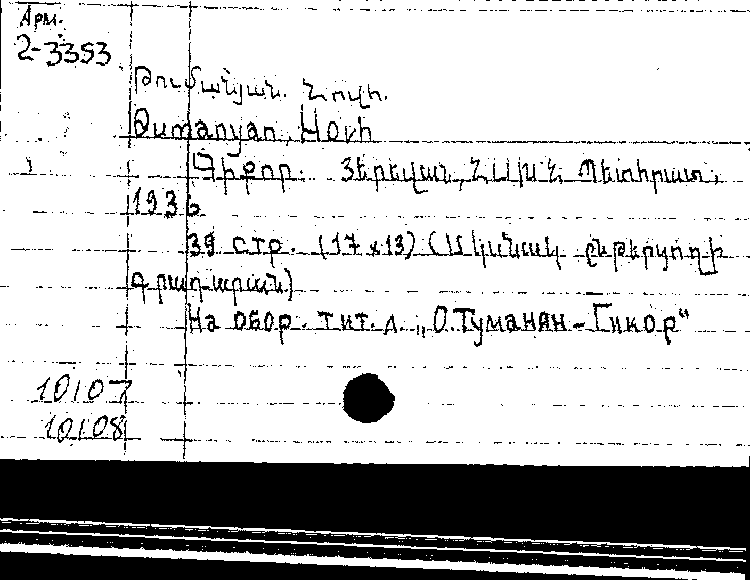 Арм.
2-3353
Թումանյան. Հովհ.
Թumanyan, Hovh
Գիքոր. Յերեվան, ՀՍԽՀ Պետհրատ,
1936
39 стр. (17x13) (Սկսնակ ընթերցողի
գրադարան)
На обор. тит. л. „О. Туманян - Гикор"
10107
10108